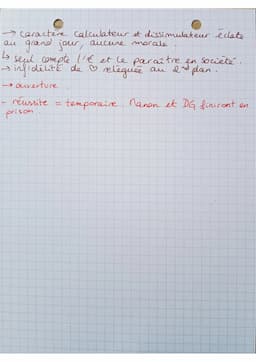 → caractère calculateur et dissimulateur éclate
au grand jour, aucune morale.
↳ seul compte l'€ et le paraître en société.
→ infidélité de ♡ reléguée au 2nd plan.
→ ouverture
- réussite = temporaire. Manon et DG finiront en
prison.